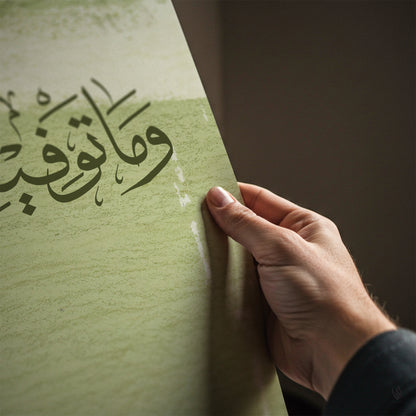 وما توفيـ